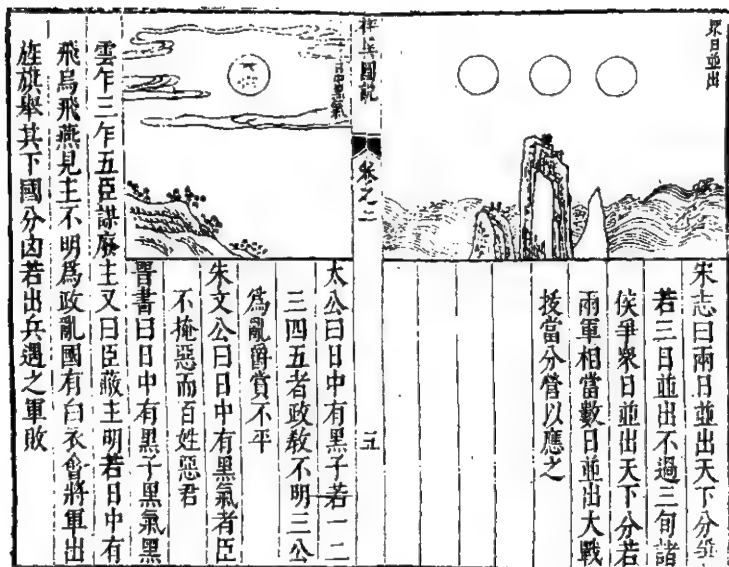 眾日並出
宋志曰兩日並出天下分爭
若三日並出不過三旬諸
侯爭眾日並出天下分若
兩軍相當數日並出大戰
技當分營以應之
兵圖說
卷之二
五
日中黑氣
太公曰日中有黑子若一二
三四五者政教不明三公
爲亂爵賞不平
朱文公曰日中有黑氣者臣
不掩惡而百姓惡君
晋書曰日中有黑子黑氣黑
雲乍三乍五臣謀廢主又曰臣蔽主明若日中有
飛烏飛燕見主不明爲政亂國有白衣會將軍出
旌旗舉其下國分凶若出兵遇之軍敗